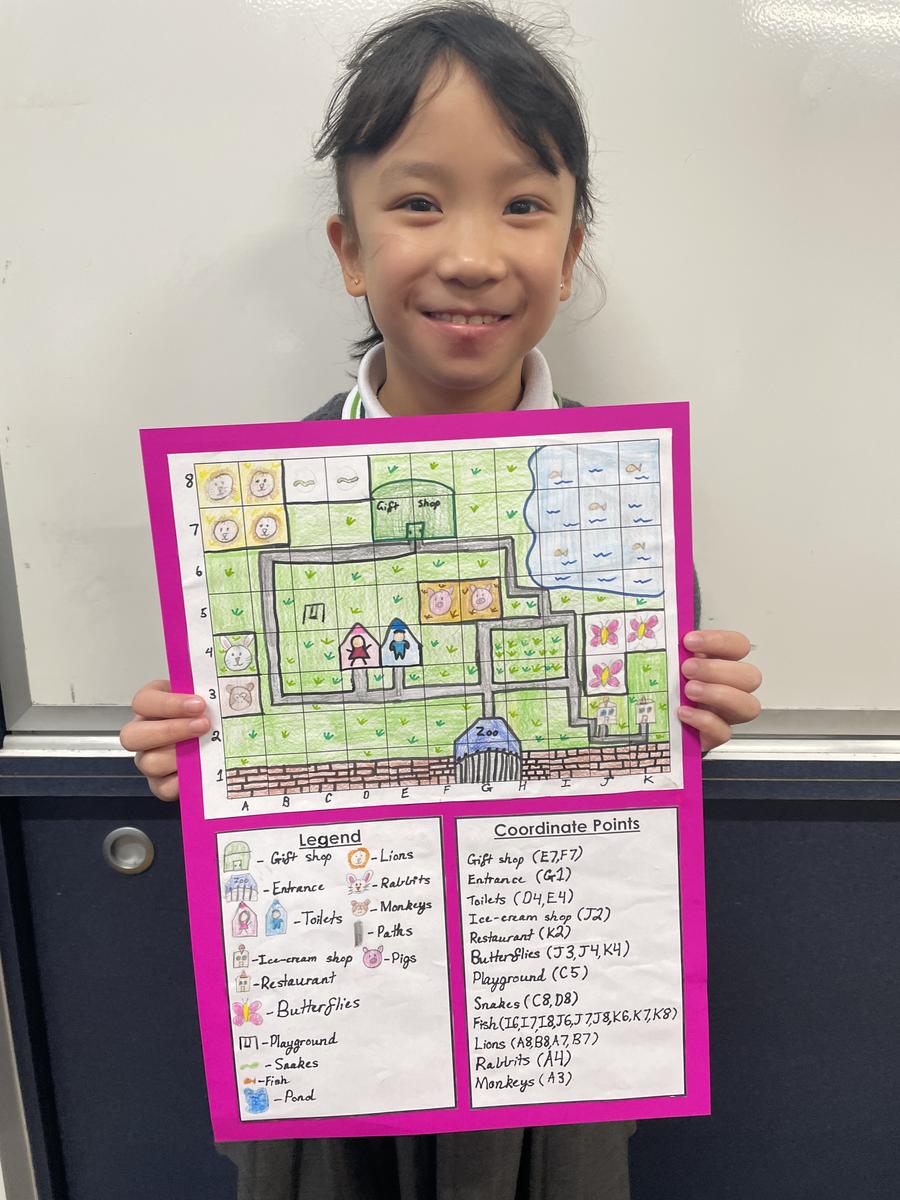 8
Gift Shop
7
6
5
4
3
2
Zoo
1
A B C D E F G H I J K
Legend
- Gift shop
- Lions
Zoo
- Entrance
- Rabbits
- Toilets
- Monkeys
- Paths
- Ice-cream shop
- Pigs
- Restaurant
- Butterflies
- Playground
- Snakes
- Fish
- Pond
Coordinate Points
Gift shop (E7,F7)
Entrance (G1)
Toilets (D4,E4)
Ice-cream shop (J2)
Restaurant (K2)
Butterflies (J3,J4,K4)
Playground (C5)
Snakes (C8,D8)
Fish(I6,I7,I8,J6,J7,J8,K6,K7,K8)
Lions (A8,B8,A7,B7)
Rabbits (A4)
Monkeys (A3)